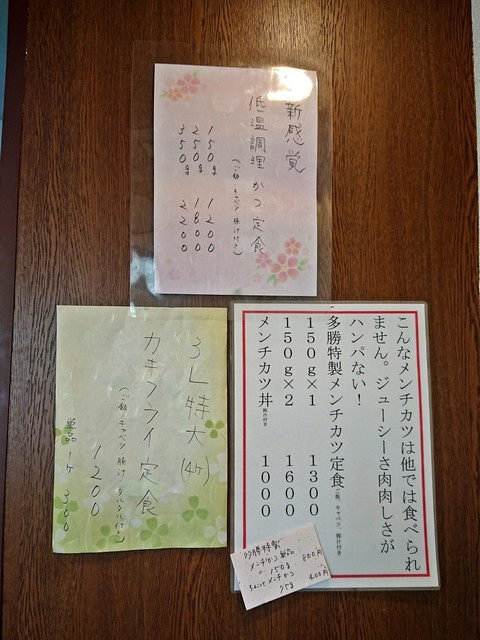 新感覚
低温調理かつ定食
（ご飯・キャベツ 豚汁付き）
150g 1200
250g 1800
350g 2200
こんなメンチカツは他では食べられ
ません。ジューシーさ肉肉しさが
ハンパない！
・多勝特製メンチカツ定食（ご飯、キャベツ、豚汁付き
150g×1 1300
150g×2 1600
メンチカツ丼 豚汁付き 1000
3L特大（4ヶ）
カキフライ定食
（ご飯・キャベツ 豚汁・タルタル付き）
1200
単品1ヶ 300
多勝特製
メンチかつ単品 800円
150g
ちょこっとメンチかつ 400円
75g